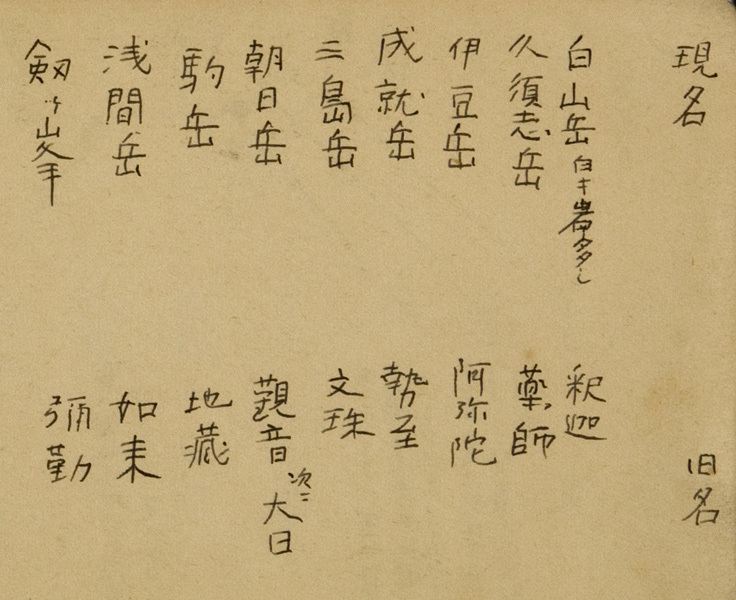 現名 旧名
白山岳 白キ岩多し 釈迦
久須志岳 薬師
伊豆岳 阿弥陀
成就岳 勢至
三島岳 文珠
朝日岳 観音 次ニ 大日
駒岳 地蔵
浅間岳 如来
剱ヶ峯 弥勤